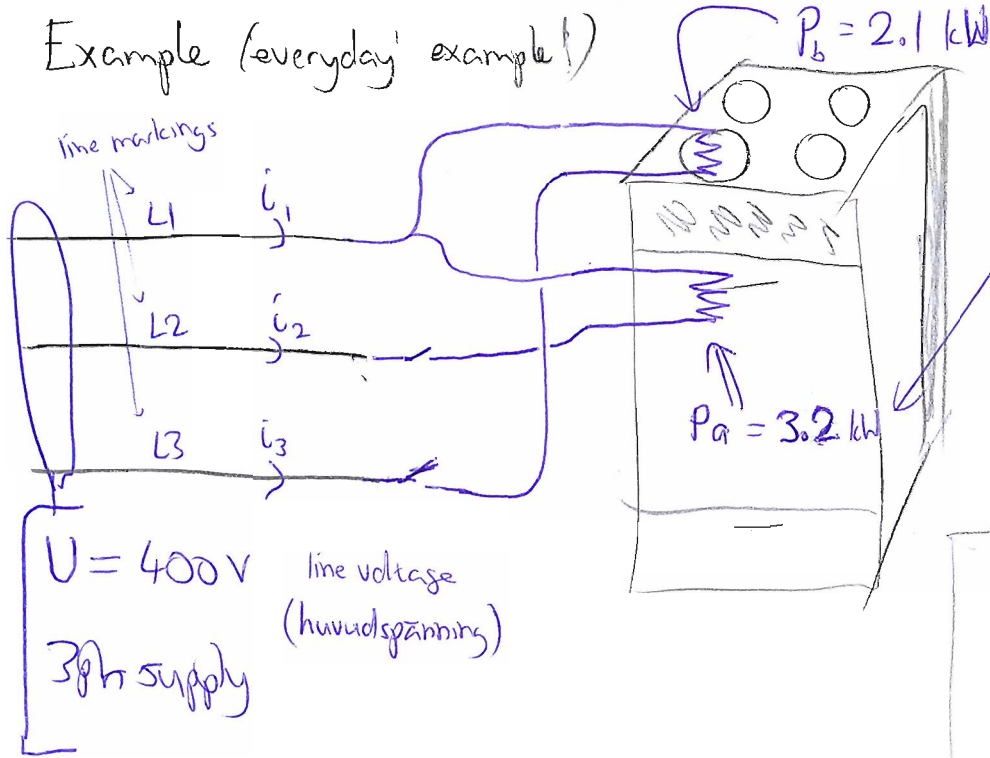 Example (everyday example!)
P_b = 2.1 kW
line markings
L1
i_1
L2
i_2
L3
i_3
P_a = 3.2 kW
U = 400 V
line voltage
(huvudspänning)
3ph supply